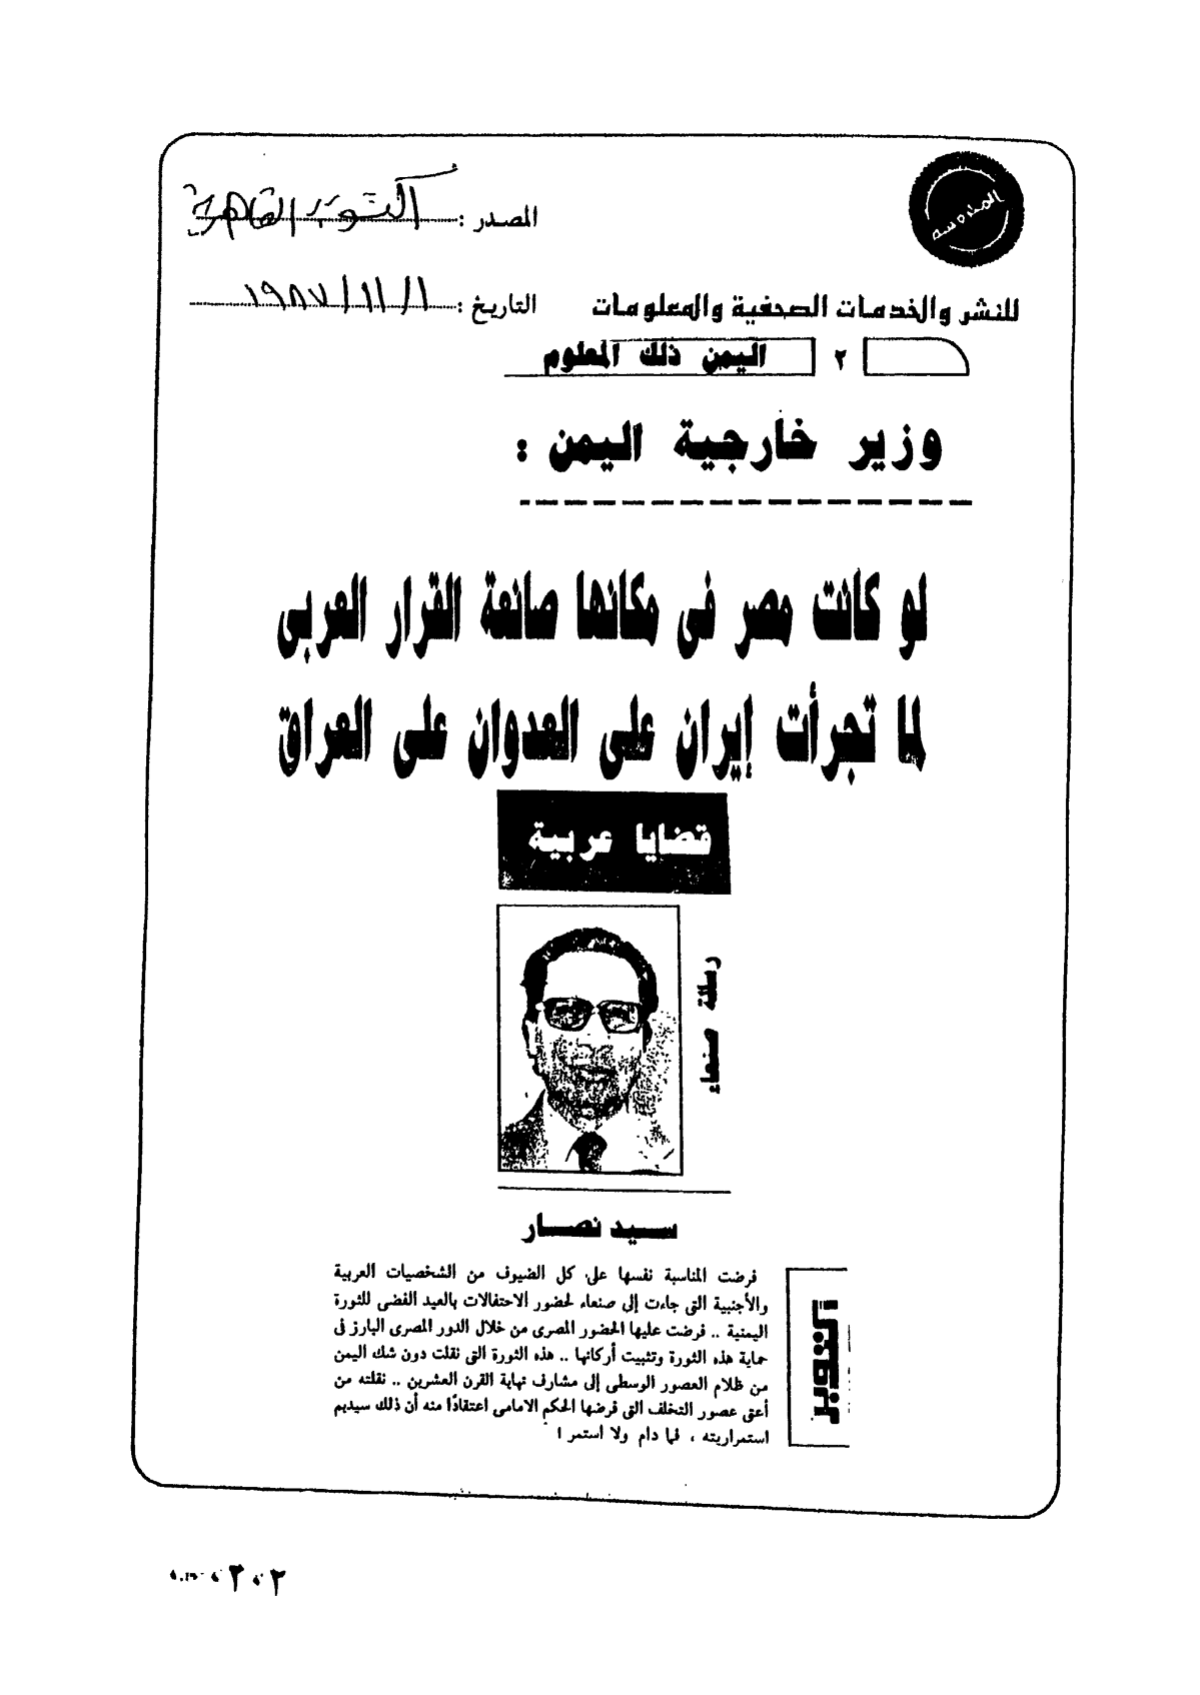 المدوسه
المصدر : أكتوبر القاهرية
التاريخ : ١٩٨٧/١١/١
للنشر والخدمات الصحفية والمعلومات
٢ اليمن ذلك المعلوم
وزير خارجية اليمن :
لو كانت مصر فى مكانها صانعة القرار العربى
لما تجرأت إيران على العدوان على العراق
قضايا عربية
رسالة صنعاء
سيد نصار
أكتوبر
فرضت المناسبة نفسها على كل الضيوف من الشخصيات العربية
والأجنبية التى جاءت إلى صنعاء لحضور الاحتفالات بالعيد الفضى للثورة
اليمنية .. فرضت عليها الحضور المصرى من خلال الدور المصرى البارز فى
حماية هذه الثورة وتثبيت أركانها .. هذه الثورة التى نقلت دون شك اليمن
من ظلام العصور الوسطى إلى مشارف نهاية القرن العشرين .. نقلته من
أعتى عصور التخلف التى فرضها الحكم الامامى اعتقادًا منه أن ذلك سيديم
استمراريته ، فما دام ولا استمر !